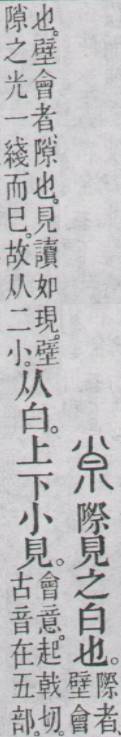 𡭴際見之白也。
際者、
壁會
也。壁會者、隙也。見讀如現。壁
隙之光一綫而巳。故从二小。
从白。上下小見。
會意。起戟切。
古音在五部。